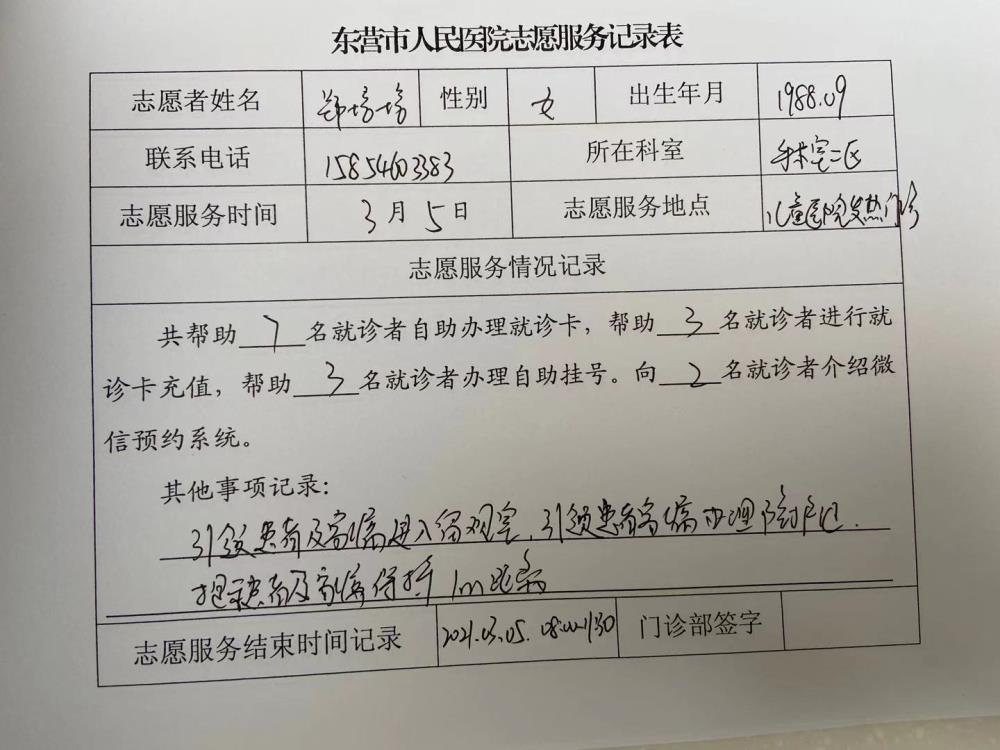 东营市人民医院志愿服务记录表
志愿者姓名 郑培培 性别 女 出生年月 1988.09
联系电话 15854603383 所在科室 手术室二区
志愿服务时间 3月5日 志愿服务地点 儿童医院发热门诊
志愿服务情况记录
共帮助 7 名就诊者自助办理就诊卡，帮助 3 名就诊者进行就
诊卡充值，帮助 3 名就诊者办理自助挂号。向 2 名就诊者介绍微
信预约系统。
其他事项记录：
引领患者及家属进入留观室，引领患者家属办理
提示患者及家属保持1m距离
志愿服务结束时间记录 2021.03.05. 08:00-11:30 门诊部签字